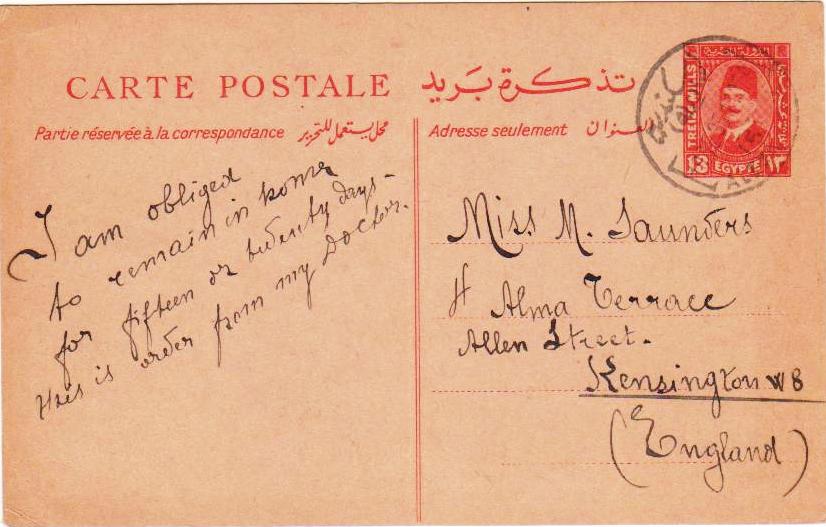 CARTE POSTALE تذكرة بريد
Partie réservée à la correspondance محل يستعمل للتحرير
Adresse seulement العنوان
TREIZE MILLS
13 EGYPTE ١٣
I am obliged
to remain in home
for fifteen or twenty days-
this is order from my Doctor.
Miss M. Saunders
4 Alma Terrace
Allen Street.
Kensington W8
(England)